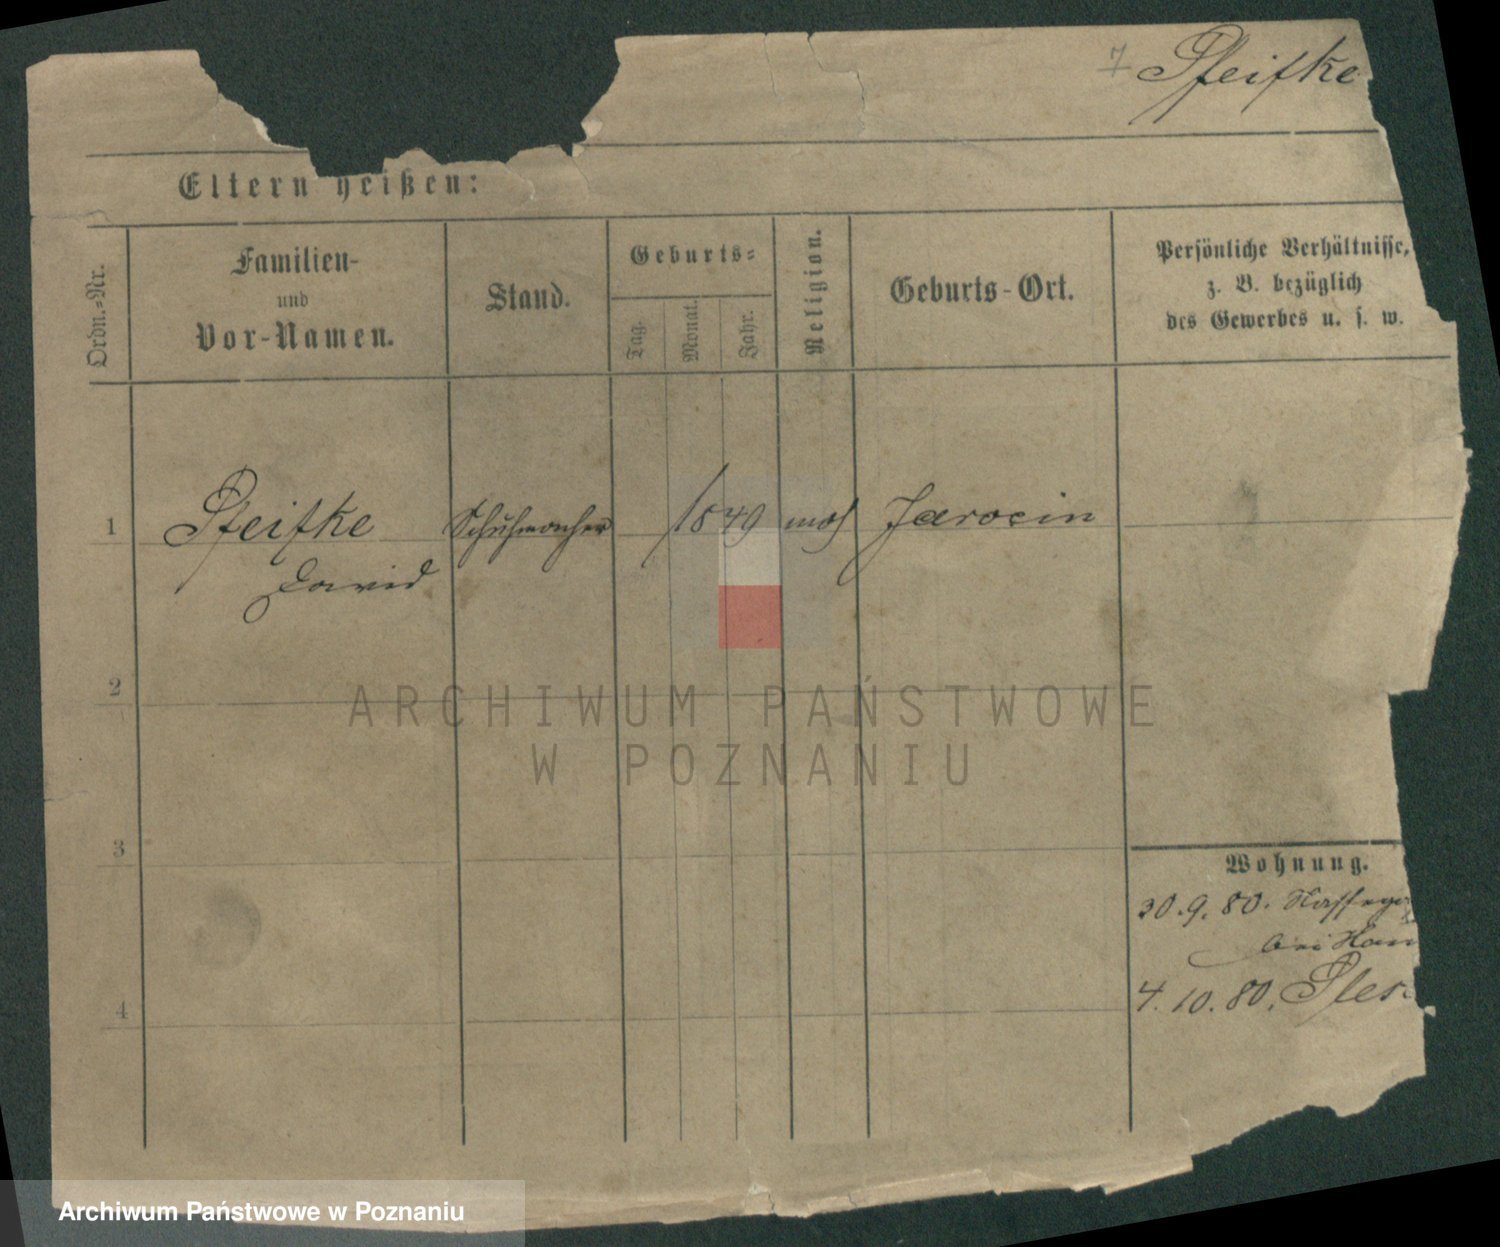 7 Pfeifke
Eltern heißen:
Ordn.-Nr.
Familien-
und
Vor-Namen.
Stand.
Geburts-
Tag.
Monat.
Jahr.
Religion.
Geburts-Ort.
Persönliche Verhältnisse,
z. B. bezüglich
des Gewerbes u. s. w.
1 Pfeifke Schuhmacher 1849 mos Jarocin
David
2
ARCHIWUM PAŃSTWOWE
W POZNANIU
3
Wohnung.
30.9.80.
bei
4
4.10.80. Ples
Archiwum Państwowe w Poznaniu